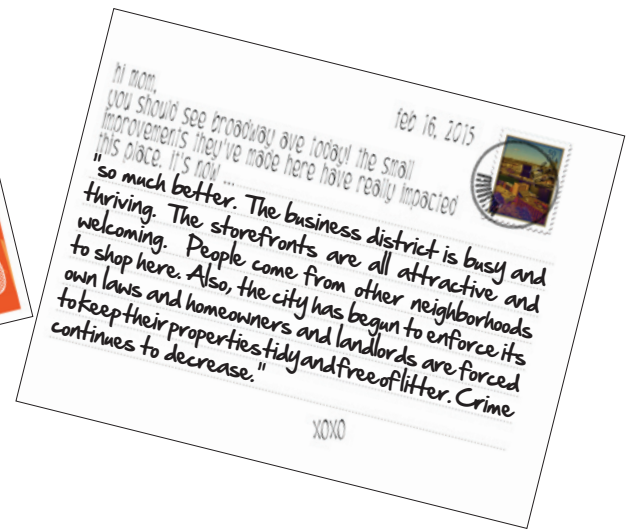 hi mom,
feb 16, 2015
you should see broadway ave today! the small
improvements they've made here have really impacted
this place. it's now ...
"so much better. The business district is busy and
thriving. The storefronts are all attractive and
welcoming. People come from other neighborhoods
to shop here. Also, the city has begun to enforce its
own laws and homeowners and landlords are forced
to keep their properties tidy and free of litter. Crime
continues to decrease."
xoxo